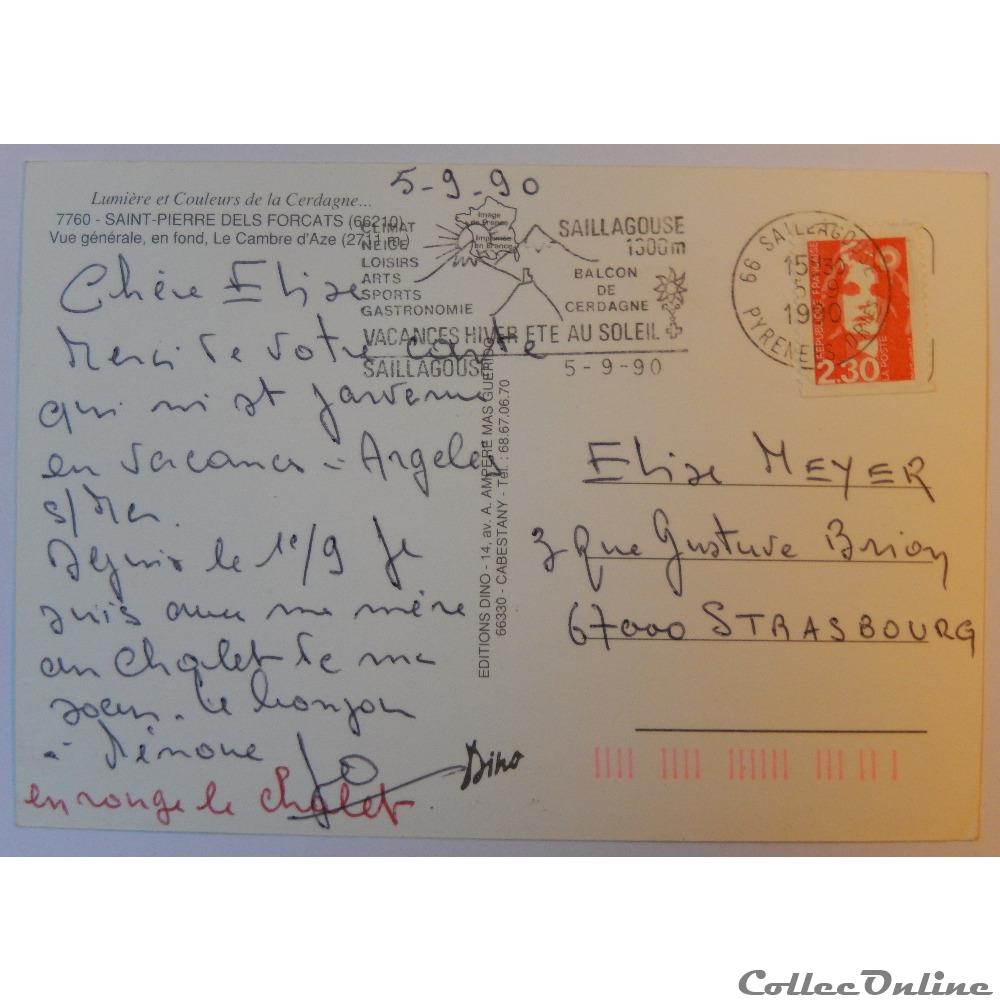 5-9-90
Lumière et Couleurs de la Cerdagne...
7760 - SAINT-PIERRE DELS FORCATS (66210)
Vue générale, en fond, Le Cambre d'Aze (2711 m.)
CLIMAT
NEIGE
LOISIRS
ARTS
SPORTS
GASTRONOMIE
Image
de France
Imprimée
en France
SAILLAGOUSE
1300m
BALCON
DE
CERDAGNE
VACANCES HIVER ETE AU SOLEIL
SAILLAGOUSE 5-9-90
66 SAILLAGOUSE
PYRENEES
1990
REPUBLIQUE FRANÇAISE
LA POSTE
2.30
Chère Elise
Merci de votre carte
qui m'est parvenue
en vacances à Argelès
s/Mer.
Depuis le 1e/9 Je
suis avec ma mère
au chalet de ma
soeur. Le bonjour
à
Jo
en rouge le chalet.
Dino
EDITIONS DINO - 14, av. A. AMPERE MAS GUERIDO
66330 - CABESTANY - Tél.: 68.67.06.70
Elise MEYER
3 Rue Gustave Brion
67000 STRASBOURG
CollecOnline